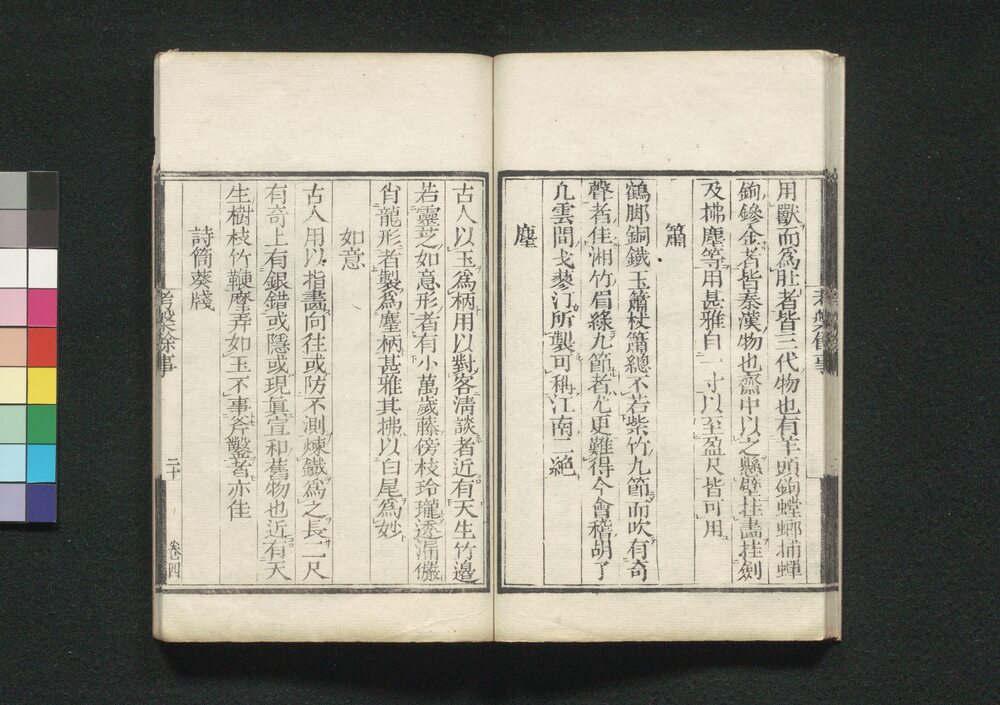 用獸而爲肚者皆三代物也有羊頭鉤螳螂捕蟬
鉤鏒金者皆秦漢物也齋中以之懸壁挂畫挂劍
及拂塵等用甚雅自一寸以至盈尺皆可用
簫
鶴脚銅鐵玉簫杖簫總不若紫竹九節而吹有奇
聲者佳湘竹眉綠九節者尤更難得今會稽胡了
凡雲間戈蓼汀所製可稱江南二絶
麈
古人以玉爲柄用以對客清談者近有天生竹邊
若靈芝如意形者有小萬歲藤傍枝玲瓏透漏儼
肖龍形者製爲麈柄甚雅其拂以白尾爲妙
如意
古人用以指畫向往或防不測煉鐵爲之長二尺
有奇上有銀錯或隱或現眞宣和舊物也近有天
生樹枝竹鞭摩弄如玉不事斧鑿者亦佳
詩筒葵牋
考槃餘事
二十
卷四